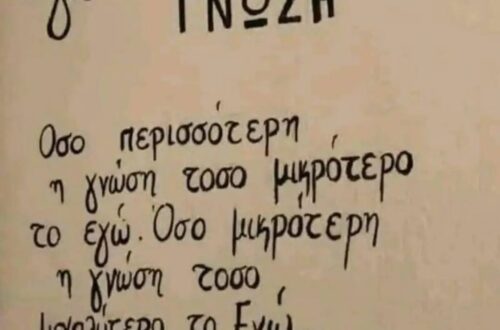 ΓΝΩΣΗ
Όσο περισσότερη
η γνώση τοσο μικρότερο
το εγώ. Όσο μικρότερη
η γνώση τοσο
μεγαλύτερο το Εγώ